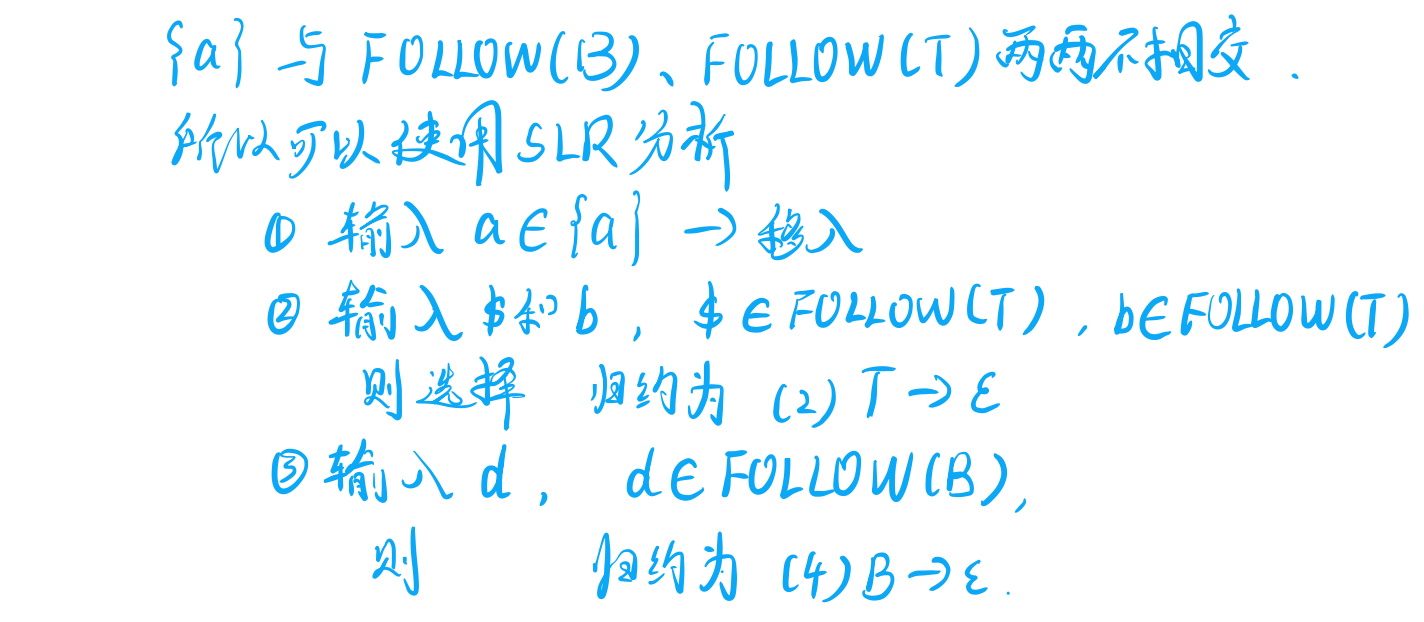 {a} 与 FOLLOW(B)、FOLLOW(T)两两不相交.
所以可以使用SLR分析
① 输入 a∈{a} → 移入
② 输入$和b, $∈FOLLOW(T), b∈FOLLOW(T)
则选择 归约为 (2) T→ε
③ 输入 d, d∈FOLLOW(B),
则 归约为 (4) B→ε.